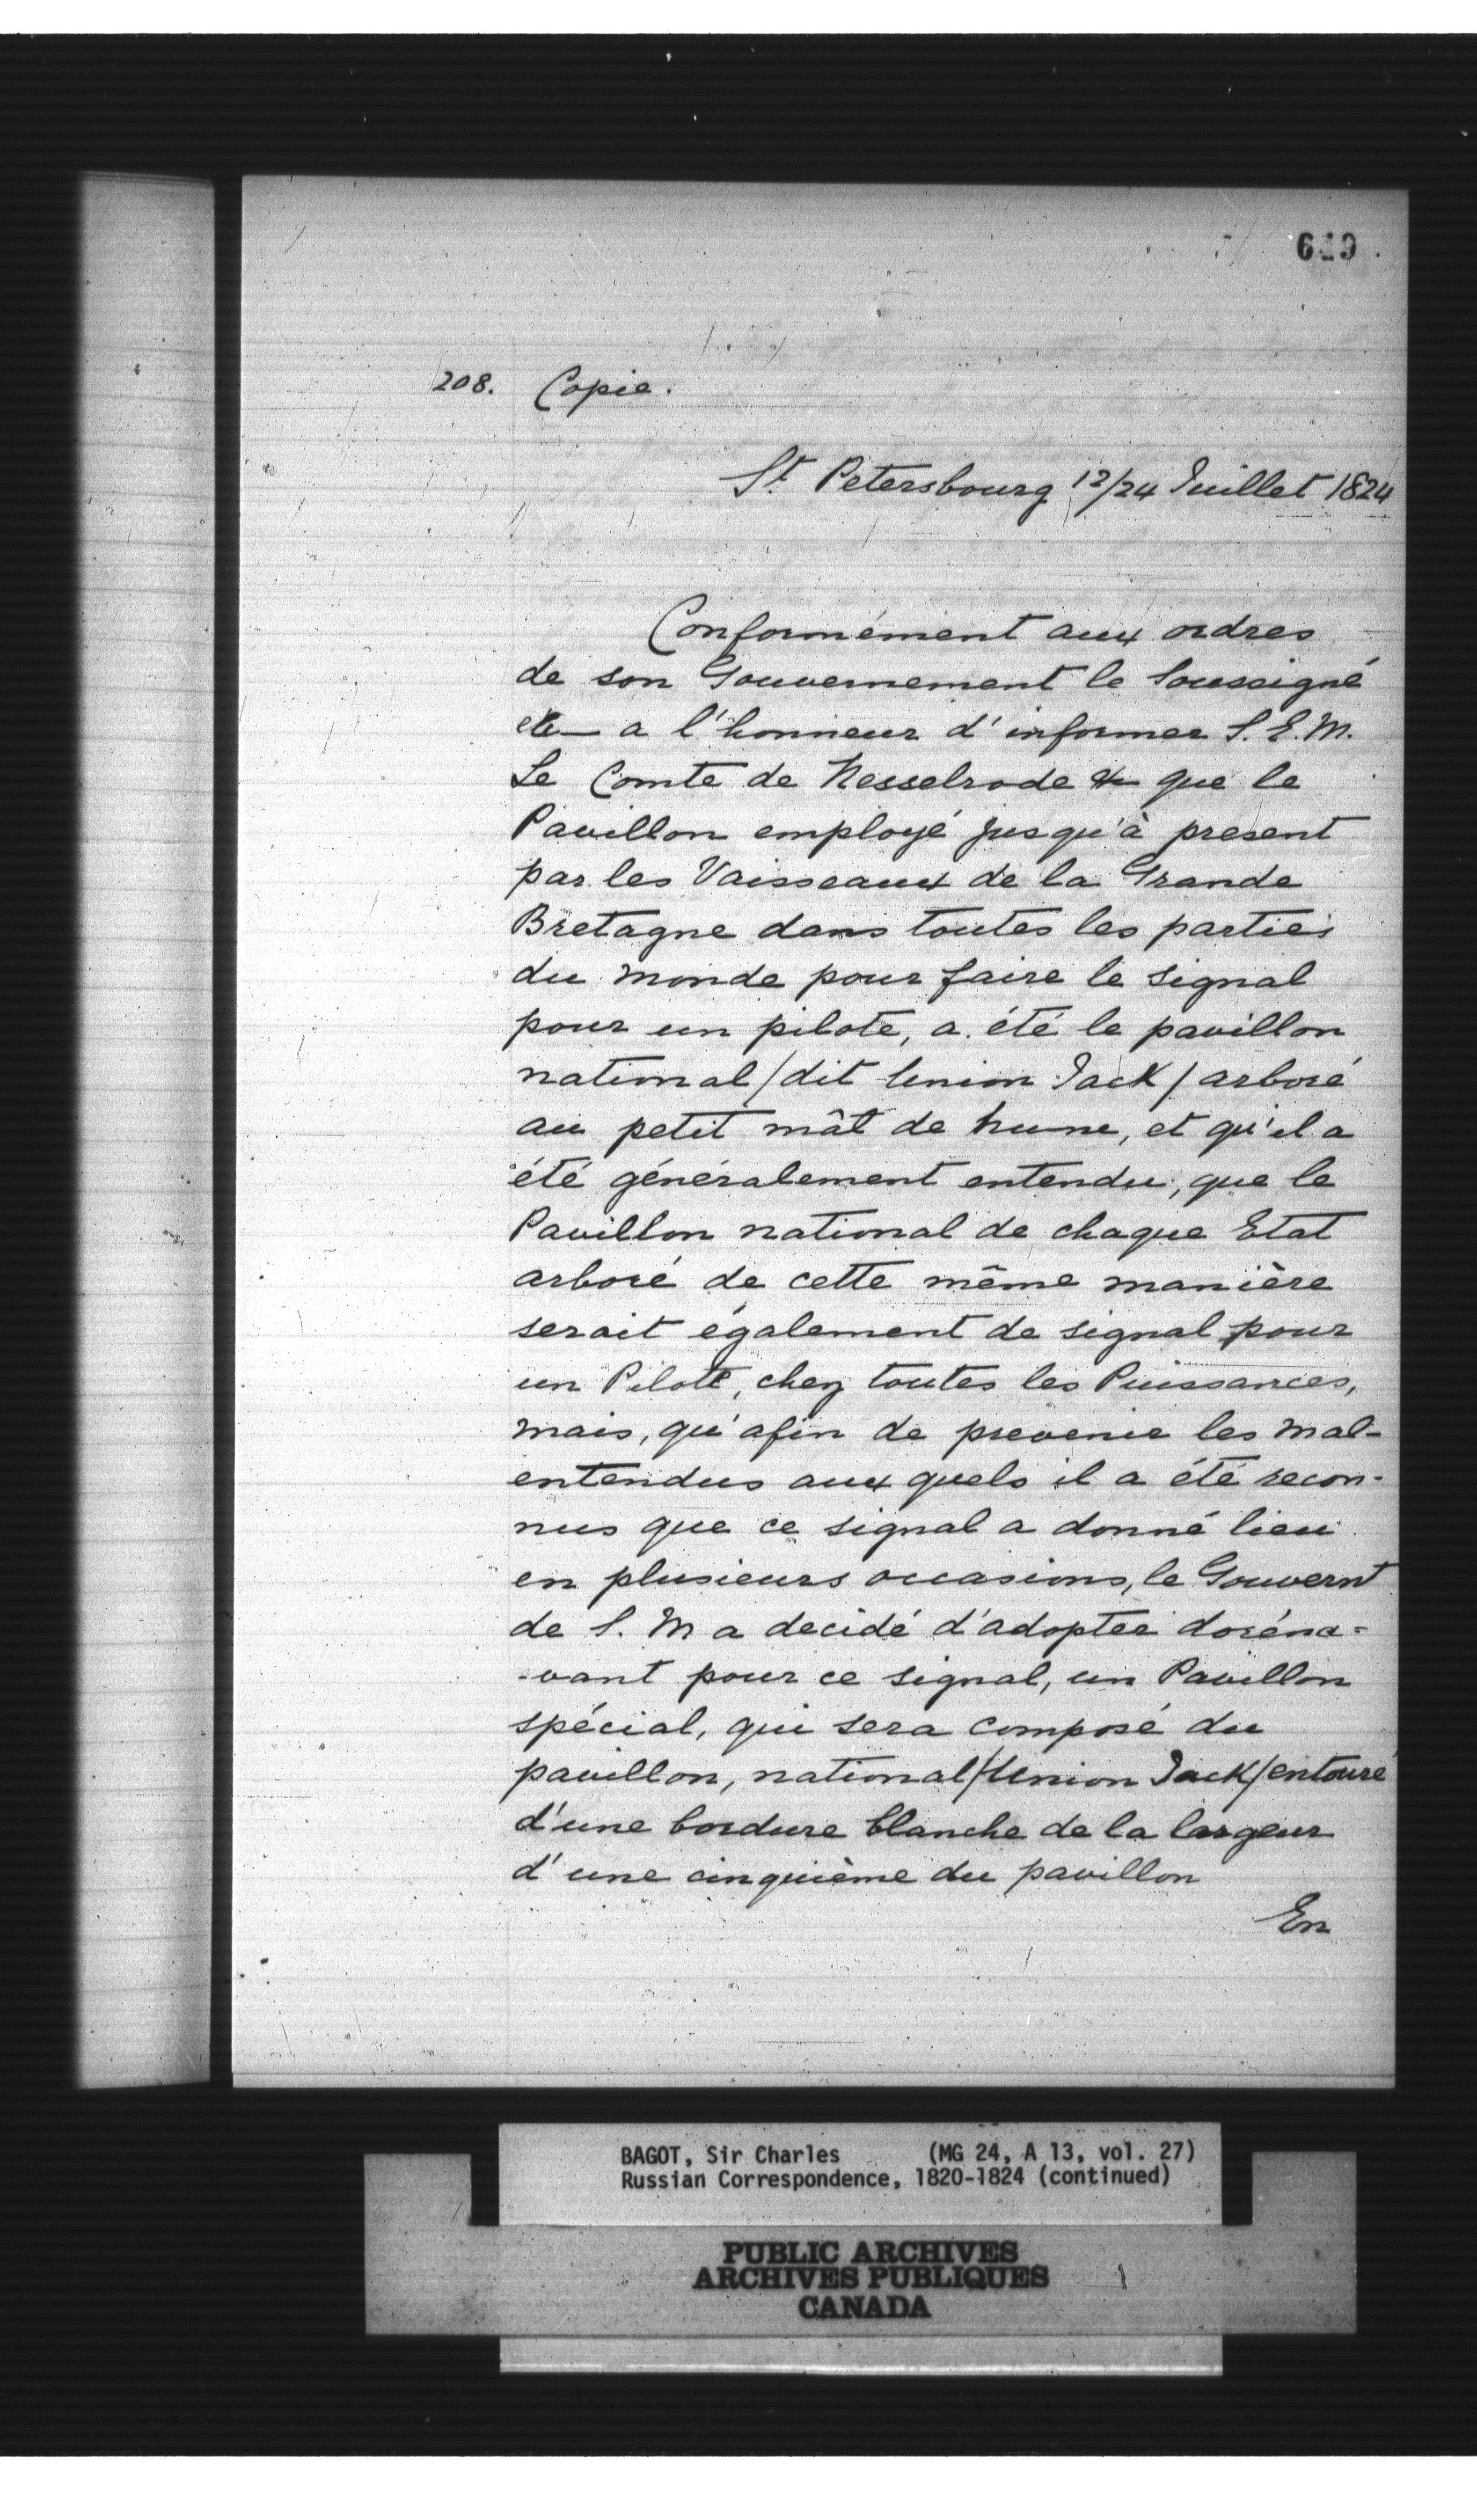 649
208. Copie.
St Petersbourg 12/24 Juillet 1824
Conformément aux ordres
de son Gouvernement le Soussigné
etc — a l'honneur d'informer S. E. M.
Le Comte de Nesselrode &c que le
Pavillon employé jusqu'à present
par les Vaisseaux de la Grande
Bretagne dans toutes les parties
du monde pour faire le signal
pour un pilote, a été le pavillon
national / dit Union Jack / arboré
au petit mât de hune, et qu'il a
été généralement entendu, que le
Pavillon national de chaque Etat
arboré de cette même manière
serait également de signal pour
un Pilote, chez toutes les Puissances,
mais, qu'afin de prevenir les mal-
entendus aux quels il a été recon-
nus que ce signal a donné lieu
en plusieurs occasions, le Gouvernt
de S. M a decidé d'adopter doréna=
-vant pour ce signal, un Pavillon
spécial, qui sera composé du
pavillon, national / Union Jack / entouré
d'une bordure blanche de la largeur
d'une cinquième du pavillon
En
BAGOT, Sir Charles (MG 24, A 13, vol. 27)
Russian Correspondence, 1820-1824 (continued)
PUBLIC ARCHIVES
ARCHIVES PUBLIQUES
CANADA